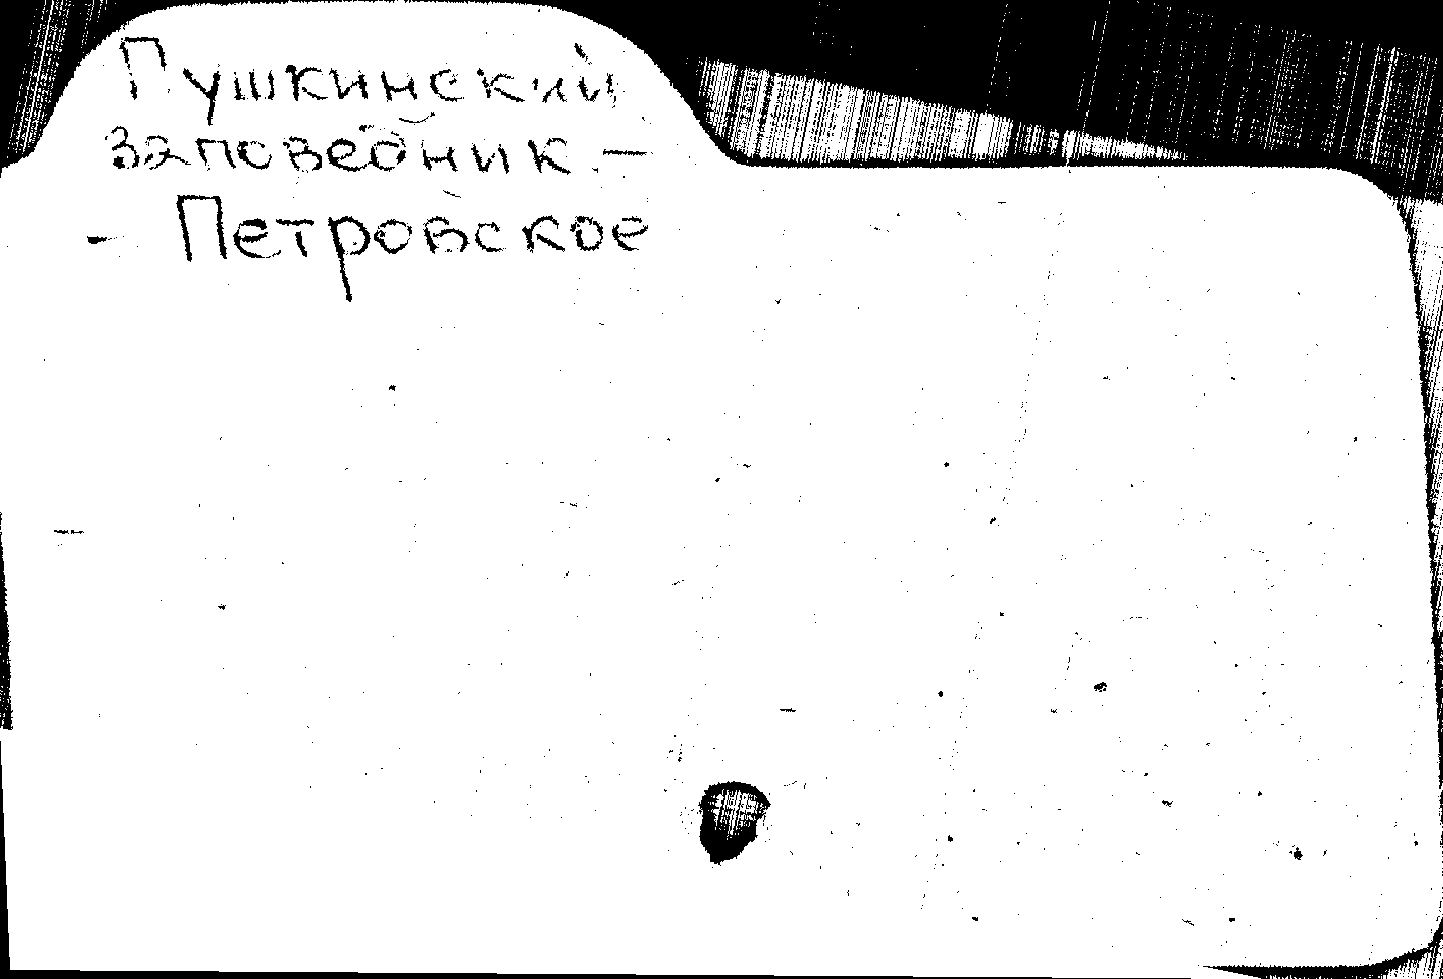 Пушкинский
заповедник —
- Петровское